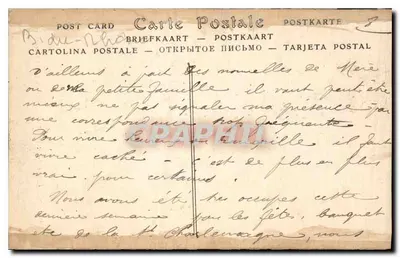 POST CARD Carte Postale POSTKARTE
BRIEFKAART — POSTKAART
CARTOLINA POSTALE — ОТКРЫТОЕ ПИСЬМО — TARJETA POSTAL
D'ailleurs à part les nouvelles de Mère
ou de la petite famille il vaut peut être
mieux ne pas signaler ma présence par
une correspondance trop fréquente
Pour vivre heureux il faut
vivre caché — C'est de plus en plus
vrai pour certains.
Nous avons été très occupés cette
dernière semaine par les fêtes, banquet
etc de la St Charlemagne, nous
CPAPHIL